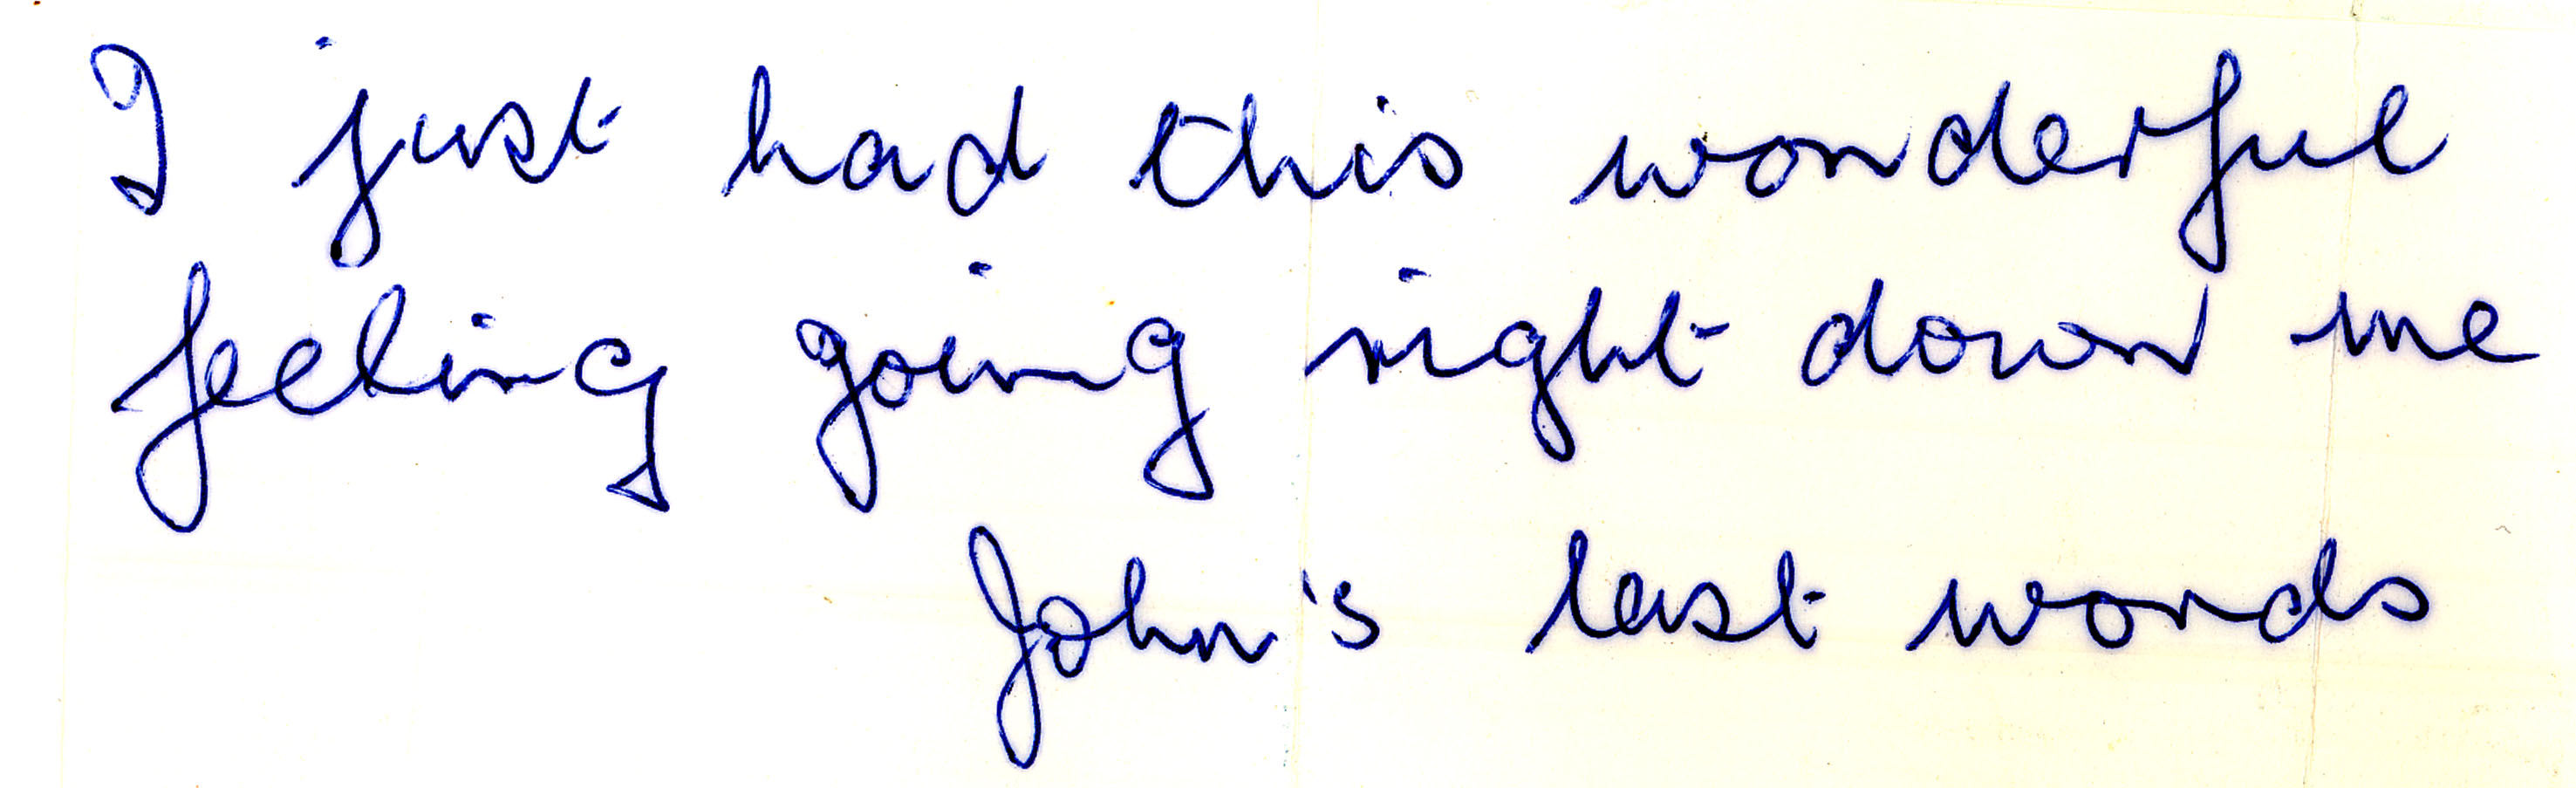 I just had this wonderful
feeling going right down me
John's last words